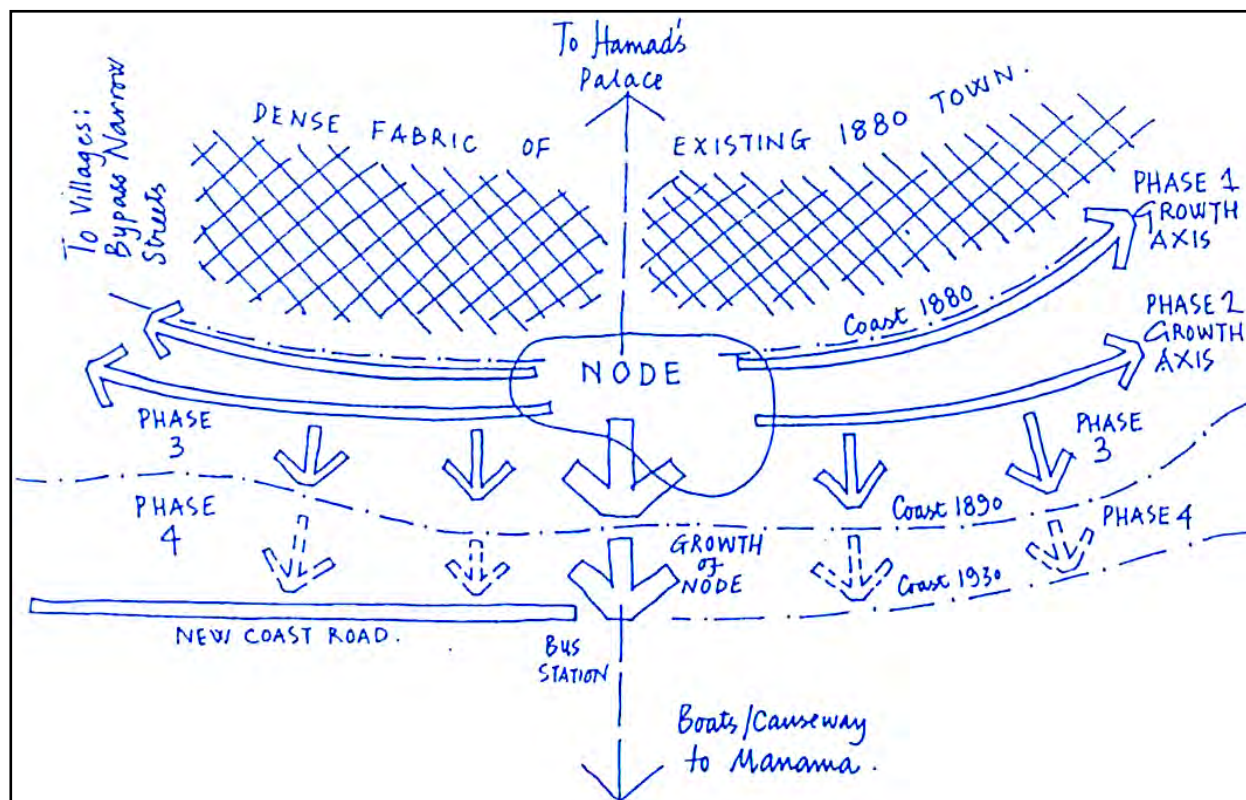 To Hamad's
Palace
To Villages:
Bypass Narrow
Streets
DENSE FABRIC OF
EXISTING 1880 TOWN.
PHASE 1
GROWTH
AXIS
Coast 1880
PHASE 2
GROWTH
AXIS
NODE
PHASE
3
PHASE
3
PHASE
4
Coast 1890
PHASE 4
GROWTH
of
NODE
Coast 1930
NEW COAST ROAD.
BUS
STATION
Boats/Causeway
to Manama.